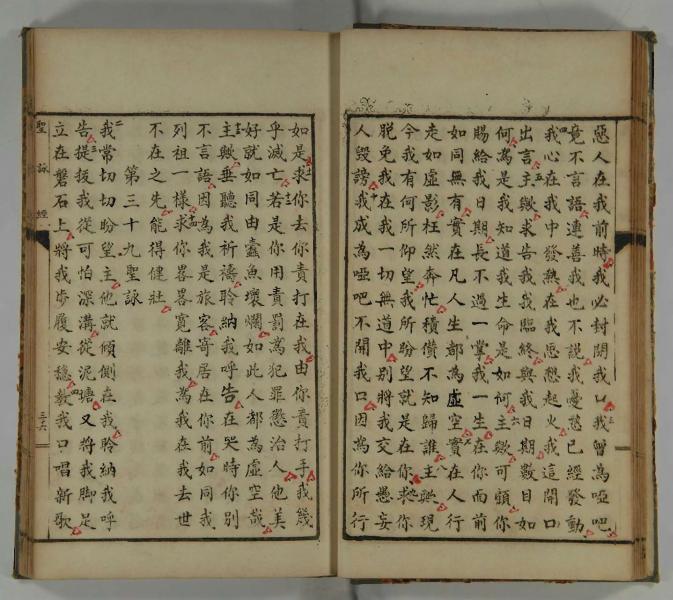 惡人在我前時我必封閉我口我曾為啞吧
竟不言語連善我也不說我憂愁已經發動
我心在我中發熱在我思想起火我這開口
出言主歟求告我我臨終與我日期數目如
何為是我知道我生命是如何主歟可顧你
賜給我日期長不過一掌我一生在你面前
如同無有實在凡人生都為虛空實在人行
走如虛影枉然奔忙積儹不知歸誰主歟現
今我有何所仰望我所盼望就是在你求你
脫免我在我一切無道中別將我交給愚妄
人毀謗我成為啞吧不開我口因為你所行
如是求你去你責打在我由你責打手我幾
乎滅亡若是你用責罰為犯罪懲治人他美
好就如同由蠹魚壞爛如此人都為虛空哉
主歟垂聽我祈禱聆納我呼告在哭時你別
不言語因為我是旅客寄居在你前如同我
列祖一樣求你畧畧寬離我為我在我去世
不在之先能得健壯
第三十九聖詠
我常切切盼望主他就傾側在我聆納我呼
告提拔我從可怕深溝從泥塘又將我脚足
立在磐石上將我步履安穩教我口唱新歌
聖詠經
三六